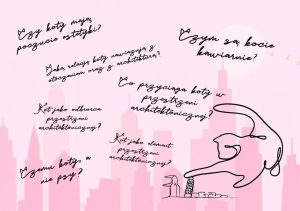 Czy koty mają
poczucie estetyki?
Czym są kocie
kawiarnie?
Jaką relację koty nawiązują z
otoczeniem oraz z architekturą?
Co przyciąga koty w
przestrzeni
architektonicznej?
Kot jako odbiorca
przestrzeni
architektonicznej?
Kot jako element
przestrzeni
architektonicznej?
Czemu koty, a
nie psy?